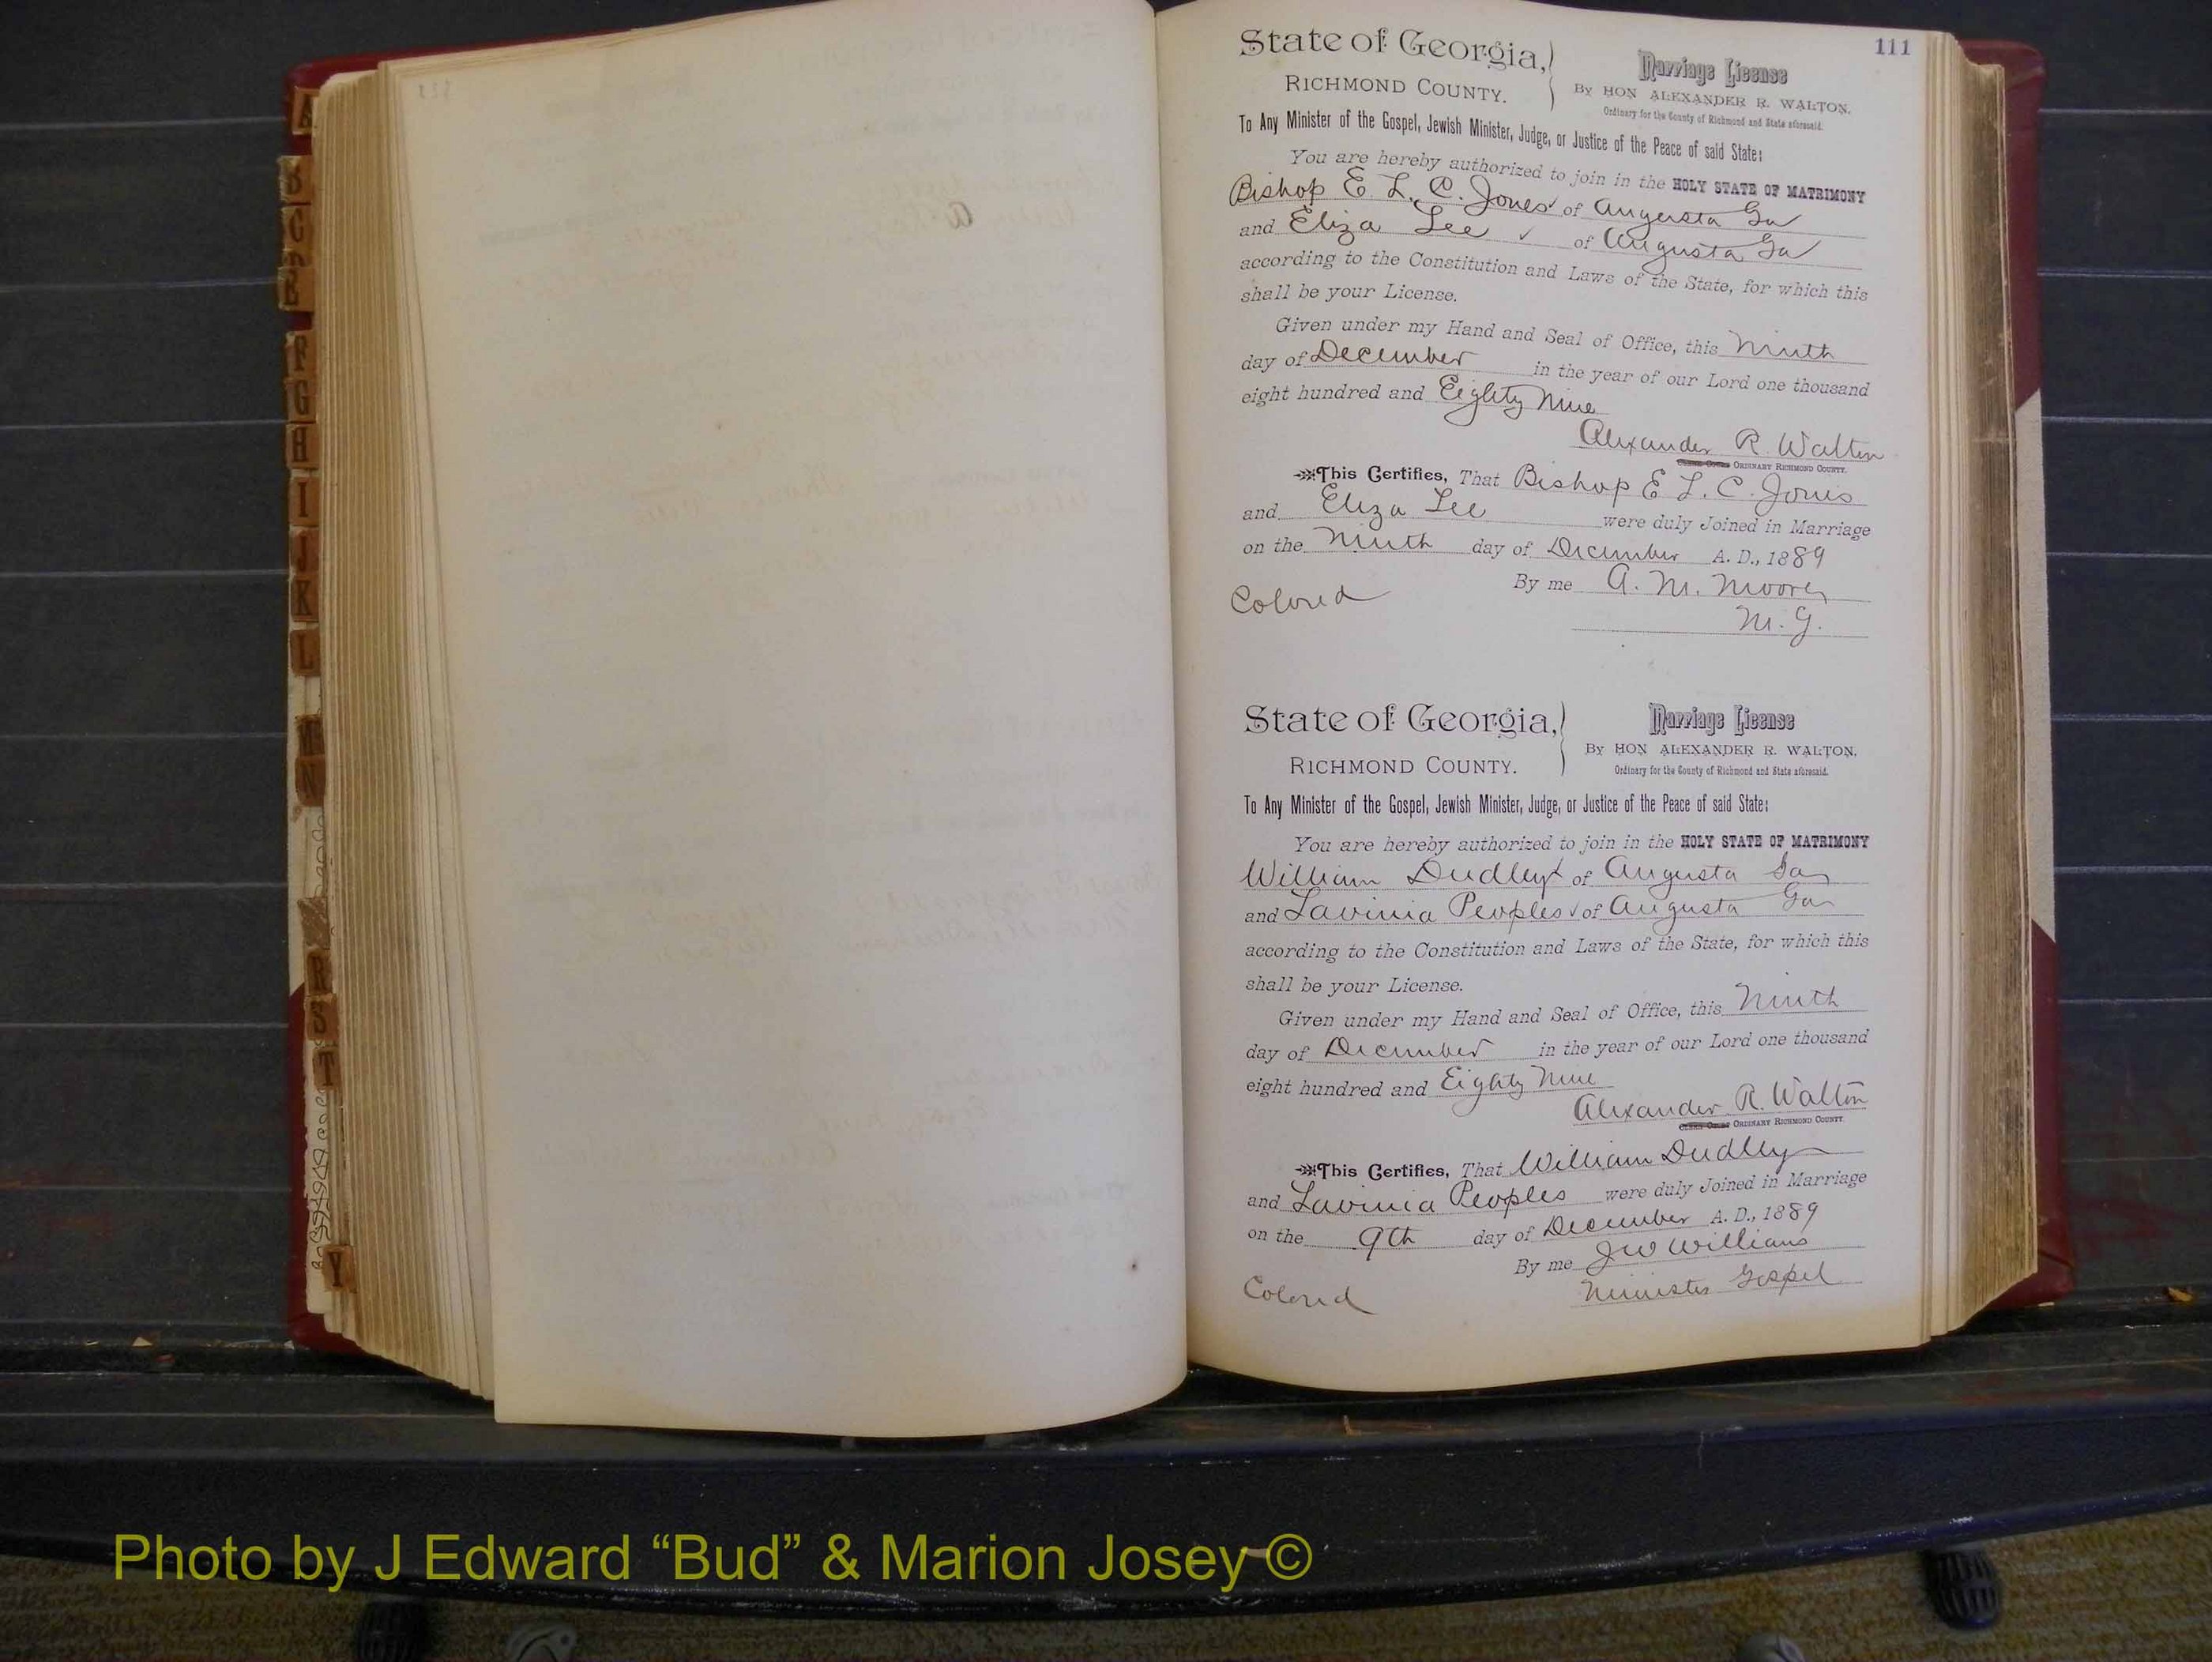 111
State of Georgia,
RICHMOND COUNTY.
Marriage License
BY HON ALEXANDER R. WALTON,
Ordinary for the County of Richmond and State aforesaid.
To Any Minister of the Gospel, Jewish Minister, Judge, or Justice of the Peace of said State:
You are hereby authorized to join in the HOLY STATE OF MATRIMONY
Bishop E. L. C. Jones of Augusta Ga
and Eliza Lee of Augusta Ga
according to the Constitution and Laws of the State, for which this
shall be your License.
Given under my Hand and Seal of Office, this Ninth
day of December in the year of our Lord one thousand
eight hundred and Eighty Nine
Alexander R. Walton
ORDINARY RICHMOND COUNTY.
This Certifies, That Bishop E L. C. Jones
and Eliza Lee were duly Joined in Marriage
on the Ninth day of December A. D., 1889
By me A. M. Moore
Colored
M. G.
State of Georgia,
RICHMOND COUNTY.
Marriage License
BY HON ALEXANDER R. WALTON,
Ordinary for the County of Richmond and State aforesaid.
To Any Minister of the Gospel, Jewish Minister, Judge, or Justice of the Peace of said State:
You are hereby authorized to join in the HOLY STATE OF MATRIMONY
William Dudley of Augusta Ga
and Lavinia Peoples of Augusta Ga
according to the Constitution and Laws of the State, for which this
shall be your License.
Given under my Hand and Seal of Office, this Ninth
day of December in the year of our Lord one thousand
eight hundred and Eighty Nine
Alexander R. Walton
ORDINARY RICHMOND COUNTY.
This Certifies, That William Dudley
and Lavinia Peoples were duly Joined in Marriage
on the 9th day of December A. D., 1889
By me J W Williams
Colored
Minister Gospel
A
B
C
E
F
G
H
I
J
K
L
M
N
R
S
T
Y
Photo by J Edward “Bud” & Marion Josey ©